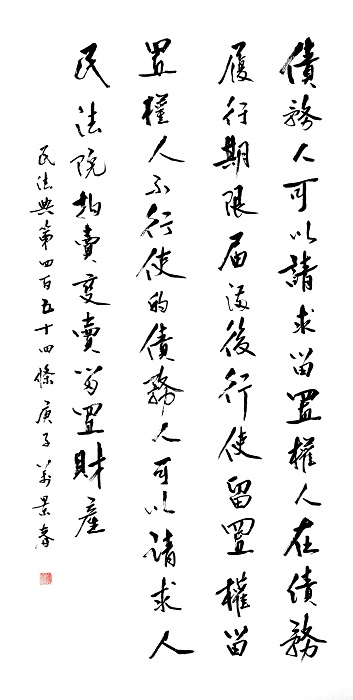 債務人可以請求留置權人在債務
履行期限屆滿後行使留置權留
置權人不行使的債務人可以請求人
民法院拍賣變賣留置財產
民法典第四百五十四條庚子萬景春